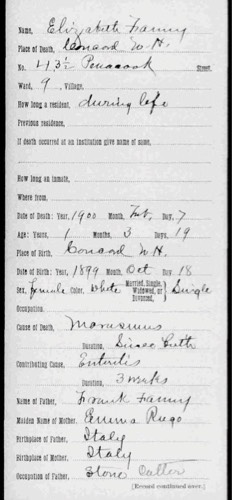 Name, Elizabeth Fanny
Place of Death, Concord N.H.
No. 43½ Penacook Street
Ward, 9, Village,
How long a resident, during life
Previous residence,
If death occurred at an institution give name of same,
How long an inmate,
Where from,
Date of Death: Year, 1900 Month, Feb, Day, 7
Age: Years, 1 Months, 3 Days, 19
Place of Birth, Concord N.H.
Date of Birth: Year, 1899 Month, Oct Day, 18
Sex, female Color, white Married, Single, Widowed, or Divorced, Single
Occupation,
Cause of Death, Marasmus
Duration, Since Birth
Contributing Cause, Enteritis
Duration, 3 weeks
Name of Father, Frank Fanny
Maiden Name of Mother, Emma Rugo
Birthplace of Father, Italy
Birthplace of Mother, Italy
Occupation of Father, Stone Cutter
[Record continued over.]